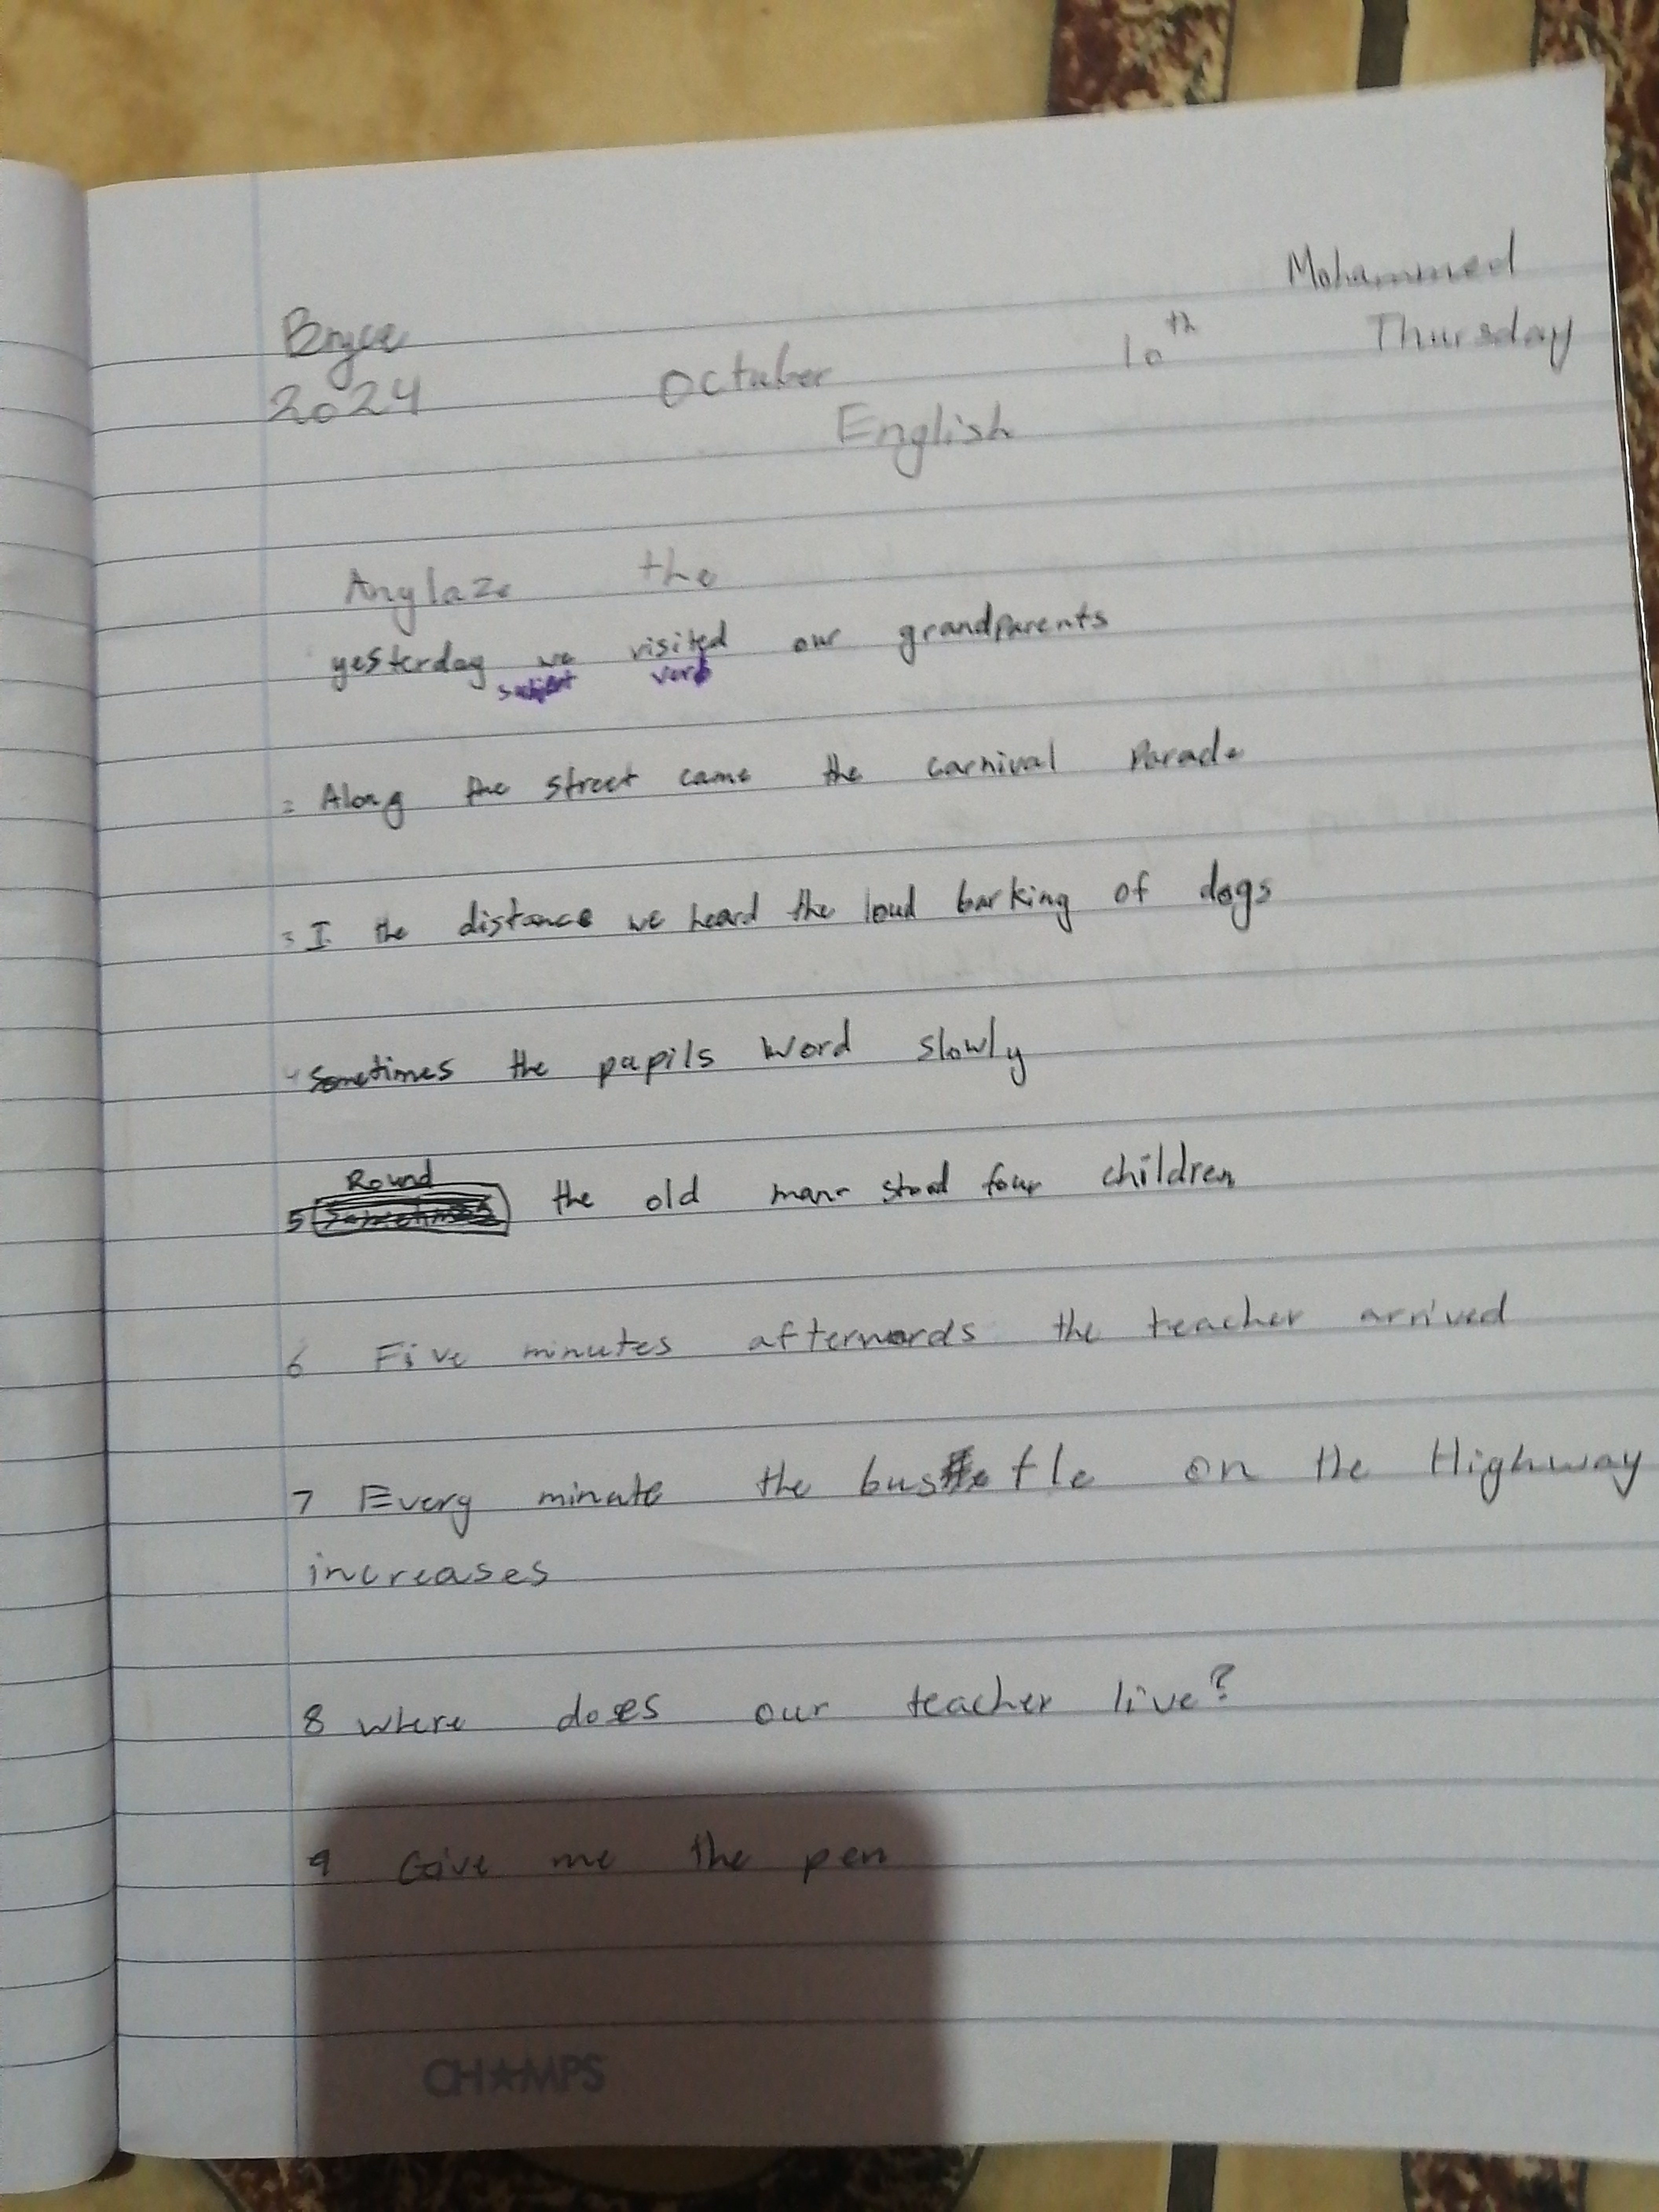 Mohammed
Bryce
2024 October 10th Thursday
English
Anylaze the
yesterday we visited our grandparents
subject verb
= Along the street came the carnival Parade
= I the distance we heard the loud barking of dogs
4 Sometimes the pupils word slowly
Round
5 the old man stood four children
6 Five minutes afterwards the teacher arrived
7 Every minute the bustle on the Highway
increases
8 where does our teacher live?
9 Give me the pen
CHAMPS